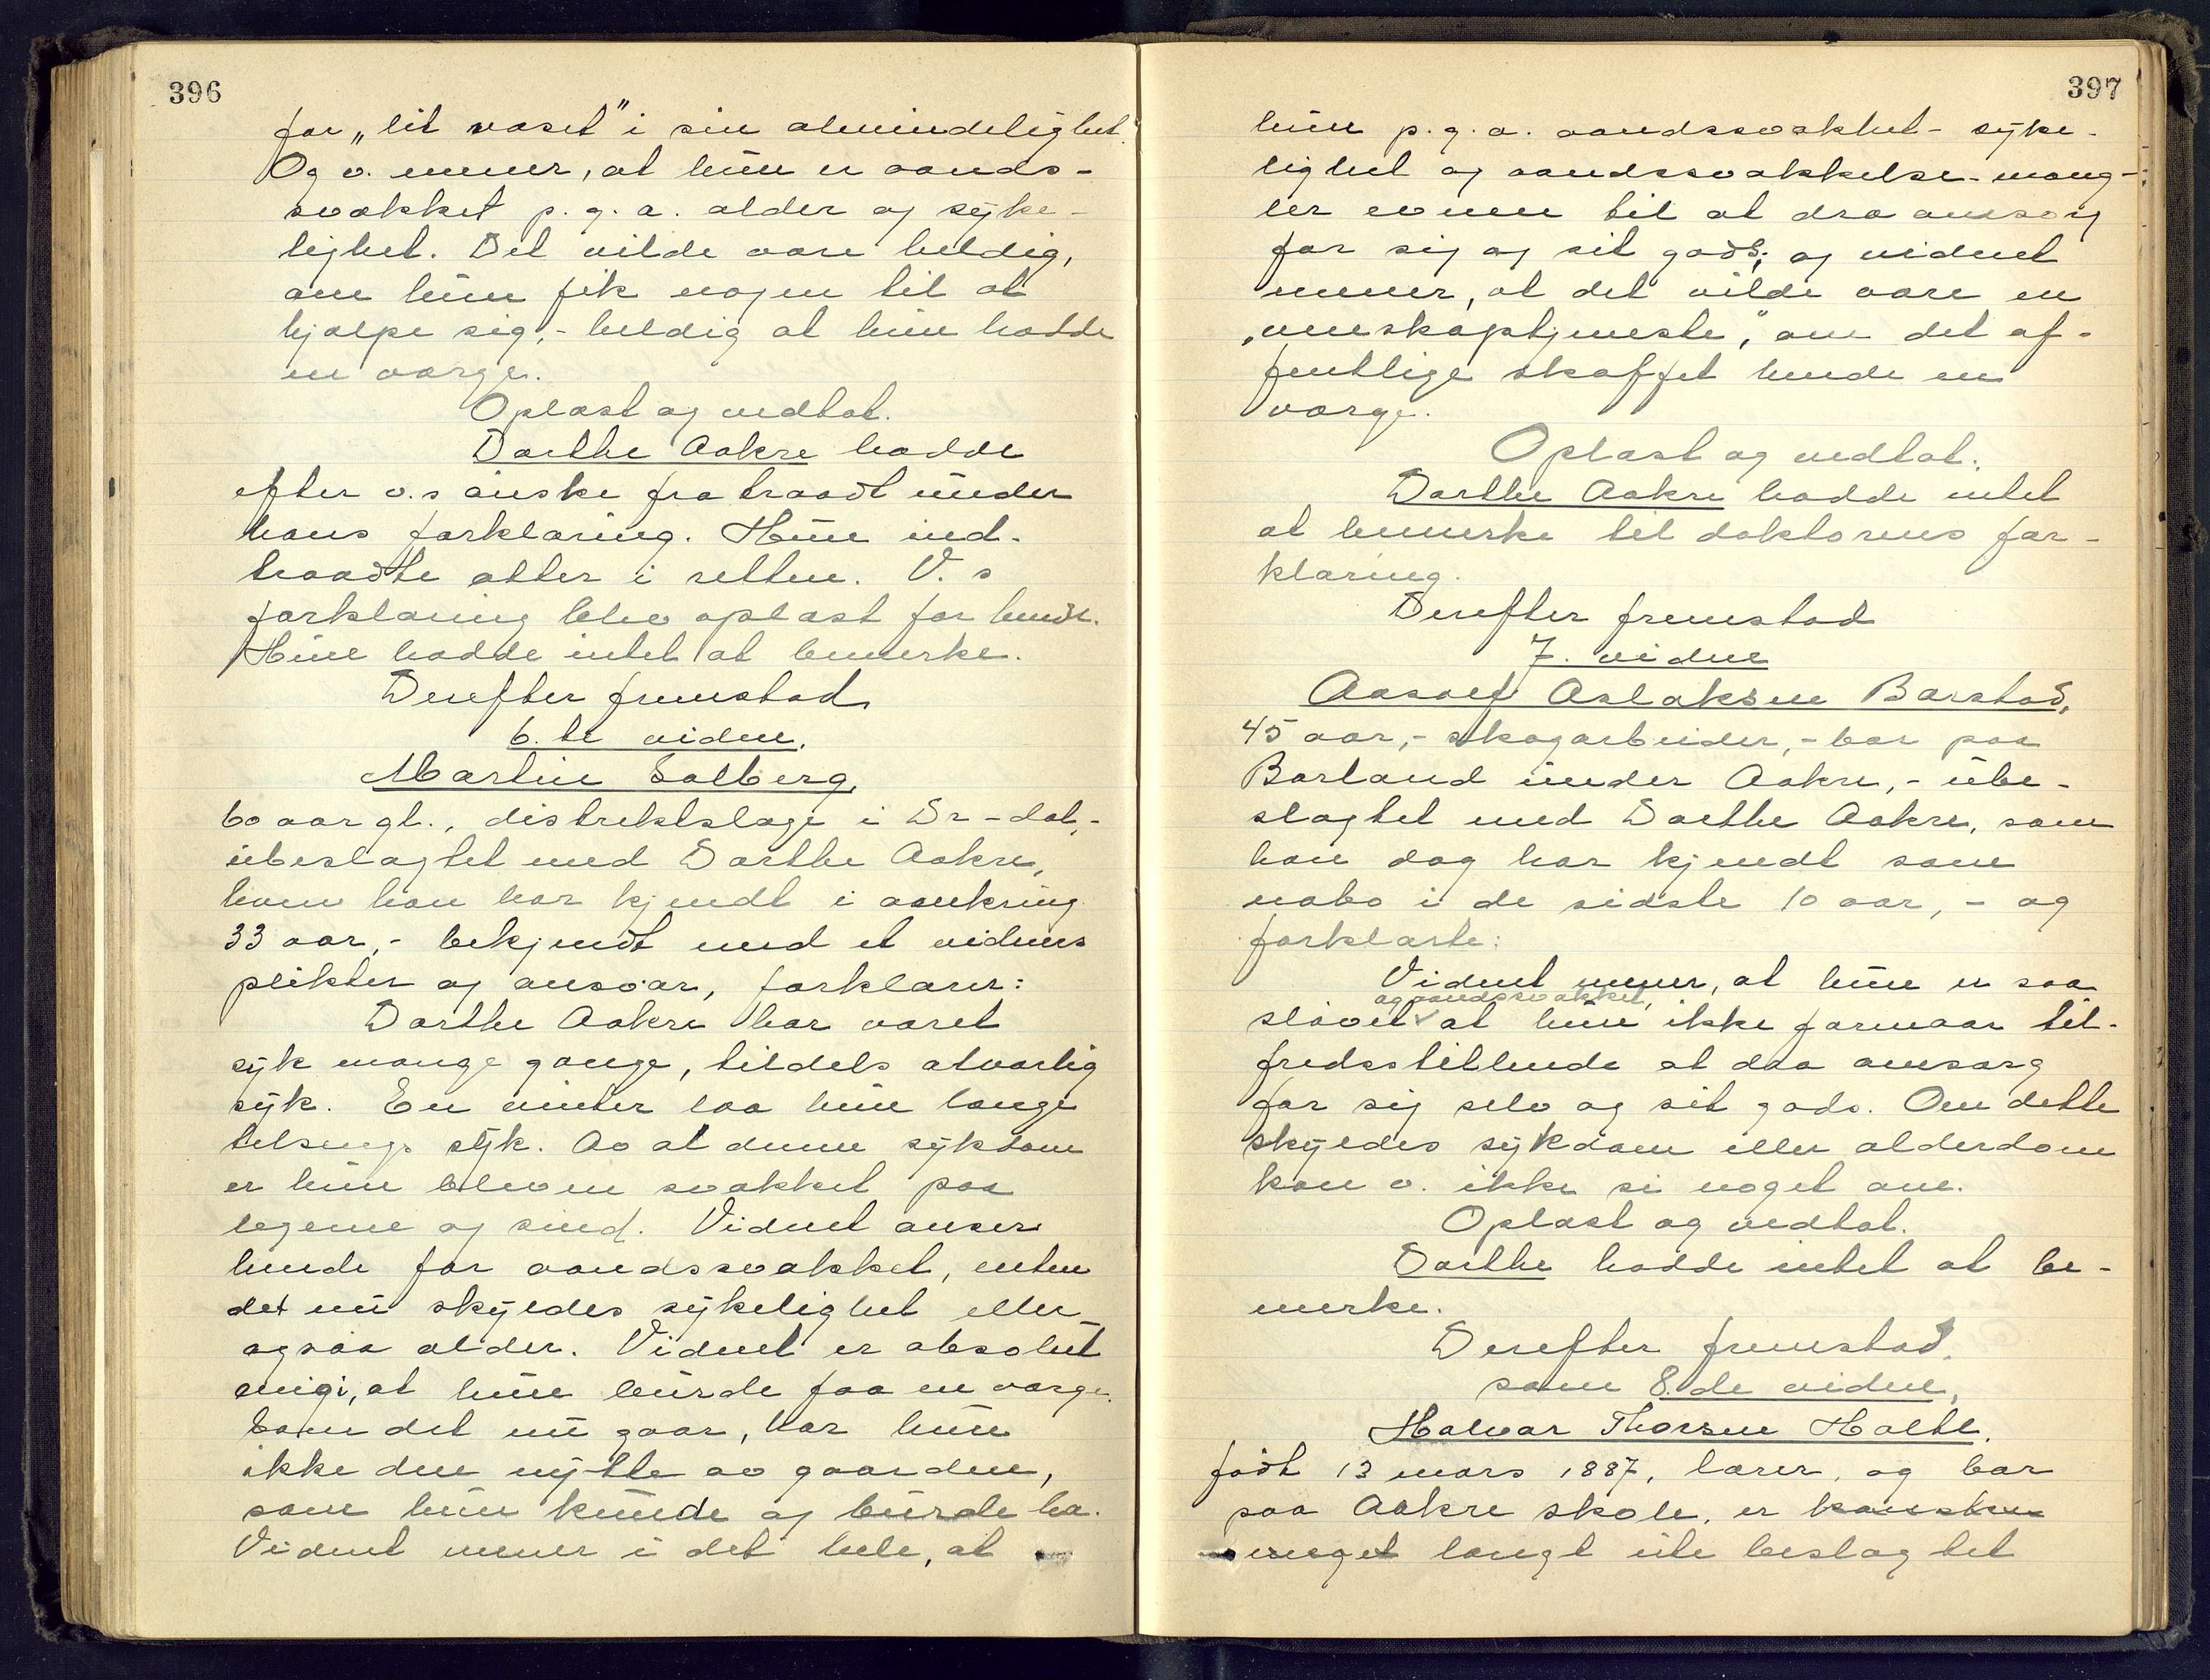 396
for „lit raset” i sin almindelighet.
Og v. mener, at hun er aands-
svækket p. g. a. alder og syke-
lighet. Det vilde være heldig,
om hun fik nogen til at
hjælpe sig, - heldig at hun hadde
en værge.
Oplæst og vedtat.
Dorthe Aakre hadde
efter v.s ønske fratraadt under
hans forklaring. Hun ind-
traadte atter i retten. V. s
forklaring blev oplæst for hende.
Hun hadde intet at bemerke.
Derefter fremstod
6. te vidne,
Martin Solberg,
60 aar gl., distriktslæge i Dr-dal, -
ubeslægtet med Dorthe Aakre,
hvem han har kjendt i omkring
33 aar, - bekjendt med et vidnes
plikter og ansvar, forklarer:
Dorthe Aakre har været
syk mange gange, tildels alvorlig
syk. En vinter laa hun længe
tilsengs syk. Av al denne sykdom
er hun bleven svækket paa
legeme og sind. Vidnet anser
hende for aandssvækket, enten
det nu skyldes sykelighet eller
ogsaa alder. Vidnet er absolut
enig i, at hun burde faa en værge.
Som det nu gaar, har hun
ikke den nytte av gaarden,
som hun kunde og burde ha.
Vidnet mener i det hele, at
397
hun p. g. a. aandssvakhet - syke-
lighet og aandssvækkelse - mang-
ler evnen til at dra omsorg
for sig og sit gods; og vidnet
mener, at det vilde være en
„venskapstjeneste,” om det of-
fentlige skaffet hende en
værge.
Oplæst og vedtat.
Dorthe Aakre hadde intet
at bemerke til doktorens for-
klaring.
Derefter fremstod
7. vidne
Aasolf Aslaksen Barstad,
45 aar, - skogarbeider, - bor paa
Barland under Aakre, - ube-
slægtet med Dorthe Aakre, som
han dog har kjendt som
nabo i de sidste 10 aar, - og
forklarte:
Vidnet mener, at hun er saa
og aandssvækket,
sløvet at hun ikke formaar til-
fredsstillende at dra omsorg
for sig selv og sit gods. Om dette
skyldes sykdom eller alderdom
kan v. ikke si noget om.
Oplæst og vedtat.
Dorthe hadde intet at be-
merke.
Derefter fremstod,
som 8. de vidne,
Halvor Thorsen Holte,
født 13 mars 1887, lærer, og bor
paa Aakre skole, er kanskne
meget langt ute beslægtet